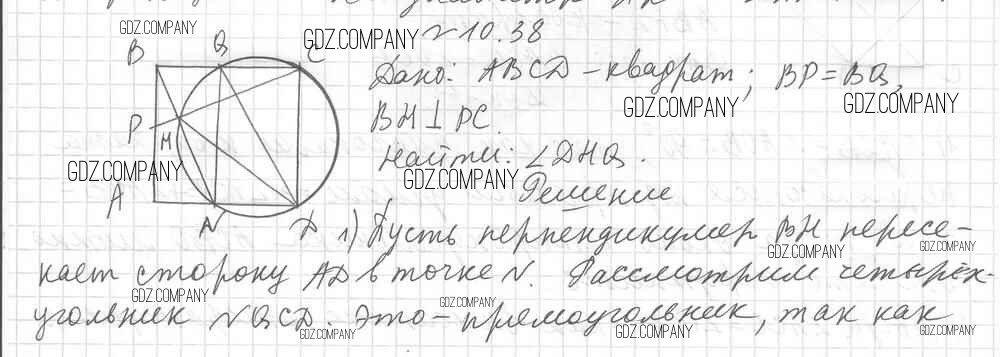 № 10.38
B Q C
Дано: ABCD – квадрат; BP = BQ,
BH ⊥ PC.
P
H
Найти: ∠DHQ.
A
Решение
N D 1) Пусть перпендикуляр BH пересе-
кает сторону AD в точке N. Рассмотрим четырёх-
угольник NQCD. Это – прямоугольник, так как
GDZ.COMPANY
GDZ.COMPANY
GDZ.COMPANY
GDZ.COMPANY
GDZ.COMPANY
GDZ.COMPANY
GDZ.COMPANY
GDZ.COMPANY
GDZ.COMPANY
GDZ.COMPANY
GDZ.COMPANY
GDZ.COMPANY
GDZ.COMPANY